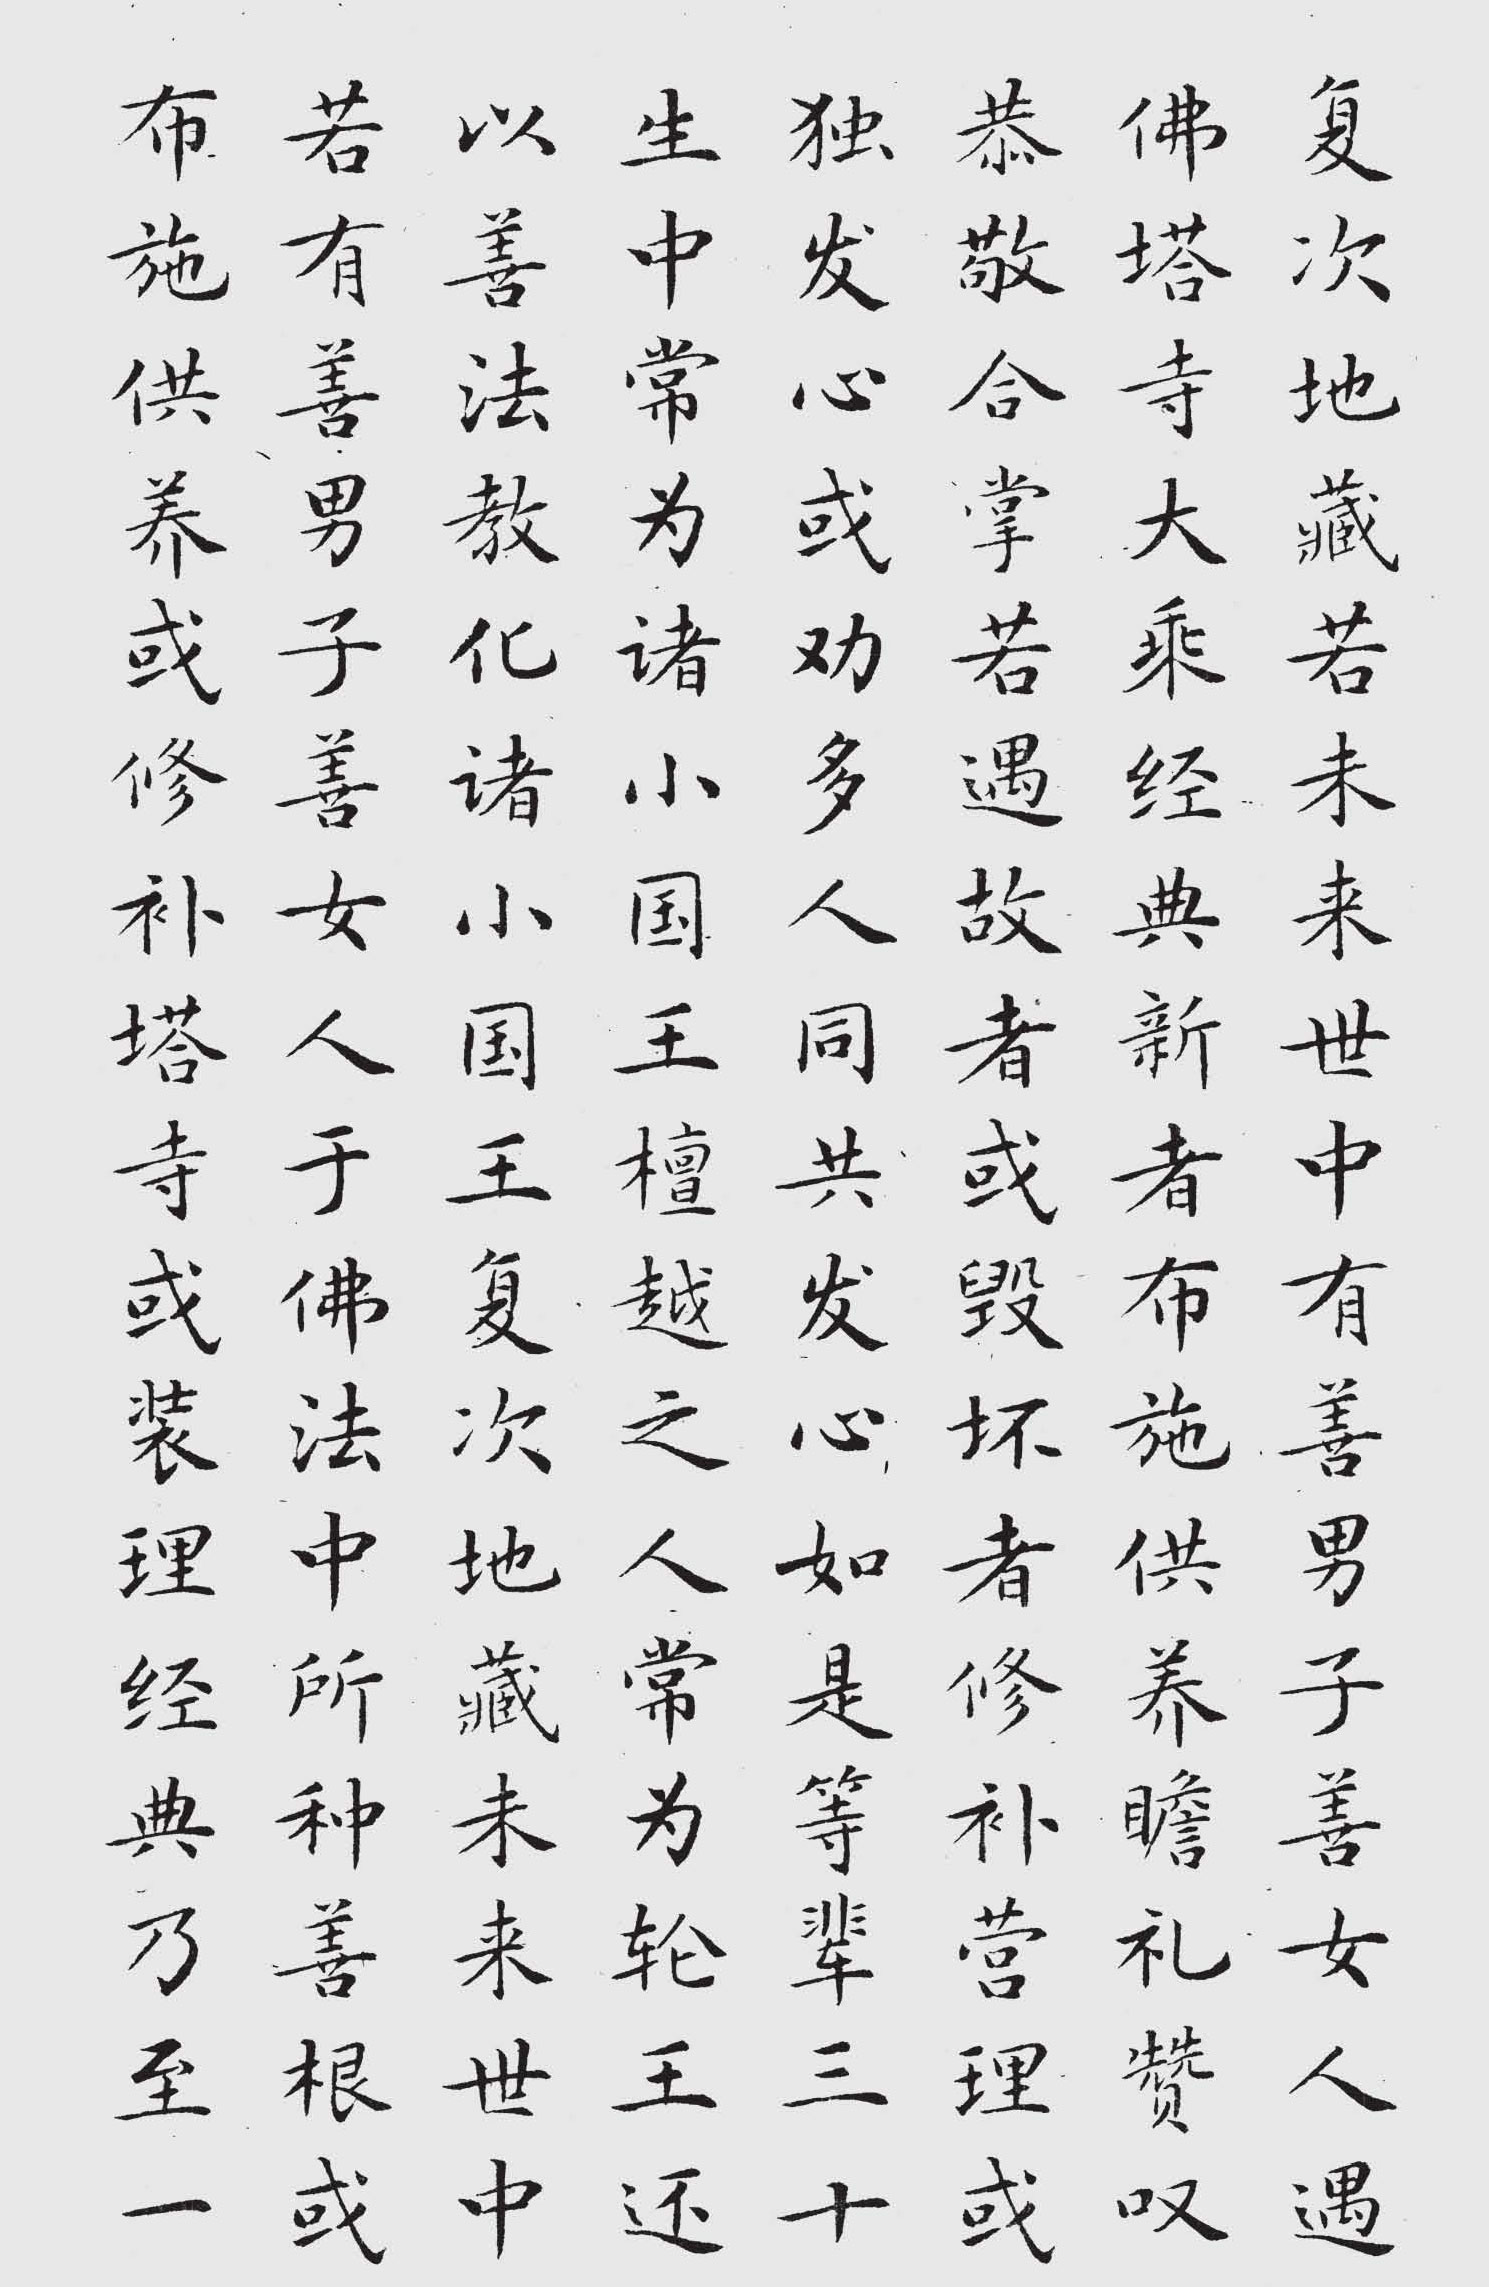 复次地藏若未来世中有善男子善女人遇
佛塔寺大乘经典新者布施供养瞻礼赞叹
恭敬合掌若遇故者或毁坏者修补营理或
独发心或劝多人同共发心如是等辈三十
生中常为诸小国王檀越之人常为轮王还
以善法教化诸小国王复次地藏未来世中
若有善男子善女人于佛法中所种善根或
布施供养或修补塔寺或装理经典乃至一